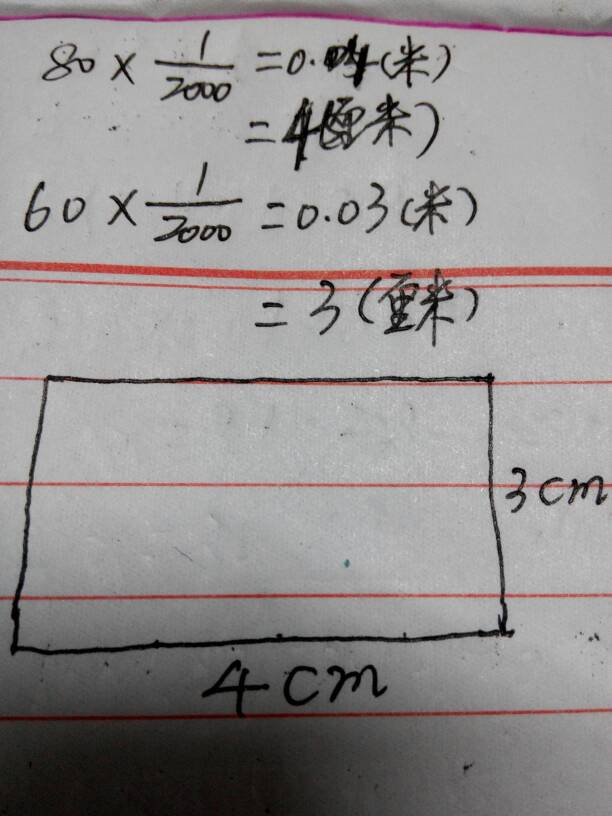 80 × 1/2000 = 0.04(米)
= 4(厘米)
60 × 1/2000 = 0.03(米)
= 3(厘米)
3cm
4cm